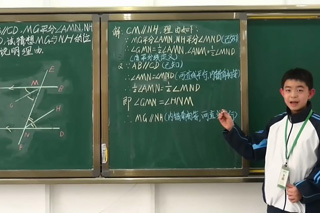 ∥CD, MG平分∠AMN,
D,试猜想MG与NH的位
说明理由.
解: GM∥NH,理由如下:
∵ MG平分∠AMN, NH平分∠MND(已知)
∴ ∠GMN=½∠AMN, ∠HNM=½∠MND
(角平分线定义)
又∵ AB∥CD(已知)
∴ ∠AMN=∠MND(两直线平行,内错角相等)
∴ ½∠AMN=½∠MND
即 ∠GMN=∠HNM
∴ MG∥NH(内错角相等,两直
E
M
G
H
N
D
F